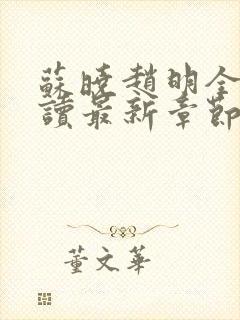 蘇曉趙明全
讀最新章節
董文華